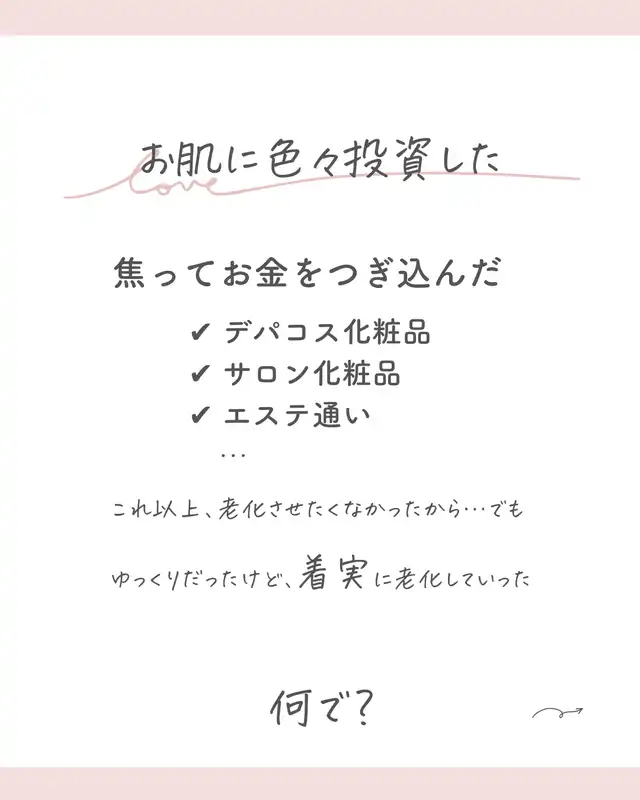 お肌に色々投資した
love
焦ってお金をつぎ込んだ
✔ デパコス化粧品
✔ サロン化粧品
✔ エステ通い
...
これ以上、老化させたくなかったから…でも
ゆっくりだったけど、着実に老化していった
何で?